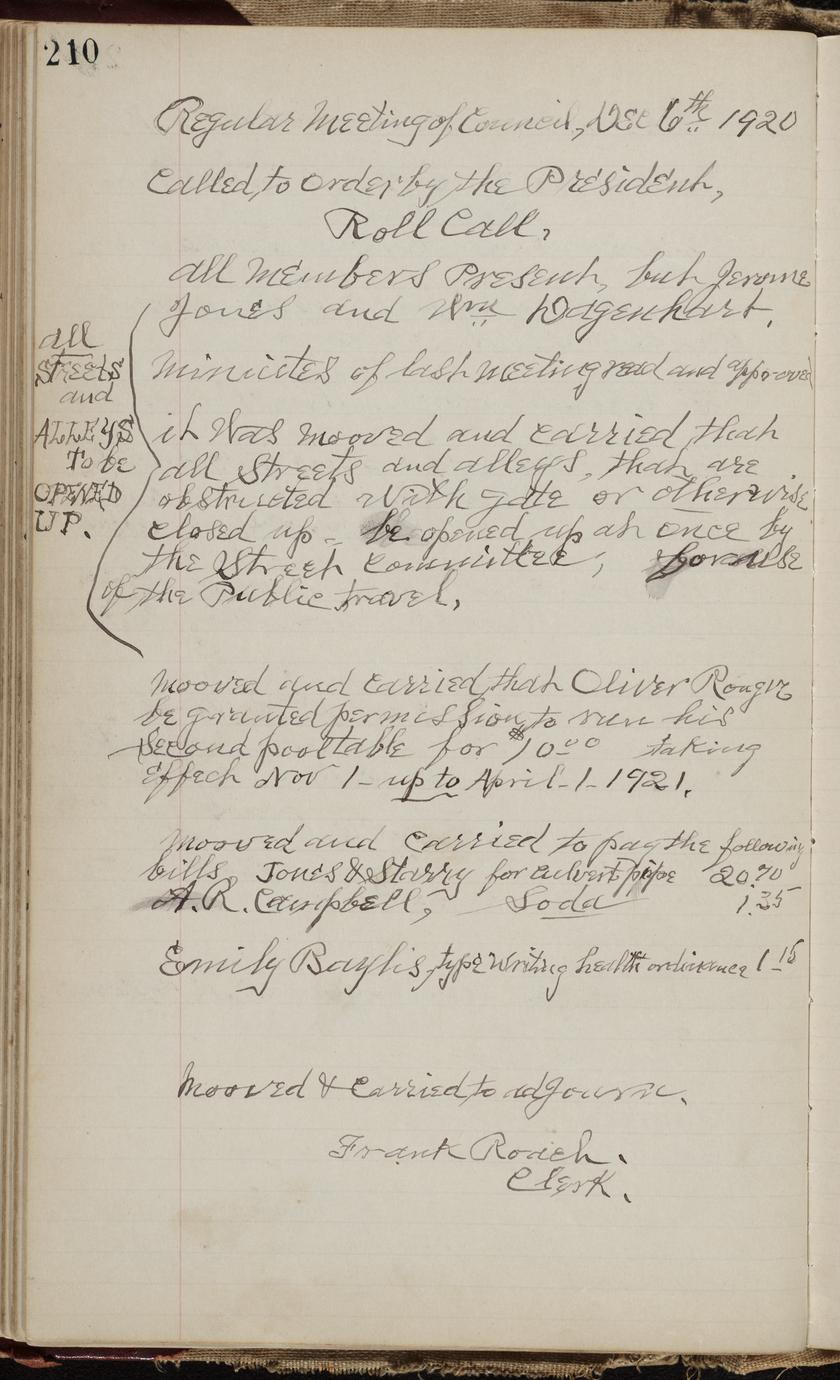 210
Regular Meeting of Council, Dec 6th 1920
Called to order by the President,
Roll Call,
all Members Present, but Jerome
Jones and Wm Wagenhart.
all
STREETS
and
ALLEYS
To be
OPENED
UP.
Minuites of last meeting read and approved
it Was mooved and carried that
all Streets and alleys, that are
obstructed With gate or otherwise
closed up - be opened up at once by
the Street Committee, for use
of the Public travel,
Mooved and carried that Oliver
be granted permission to run his
Second pool table for $10.00 taking
Effect Nov 1 - up to April - 1 - 1921.
Mooved and carried to pay the following
bills, Jones & Starry for culvert pipe 20.70
A. R. Campbell, Soda 1.35
Emily Baylis, type Writing health ordinance 1 15
Mooved & Carried to adjourn.
Frank Roach.
Clerk.